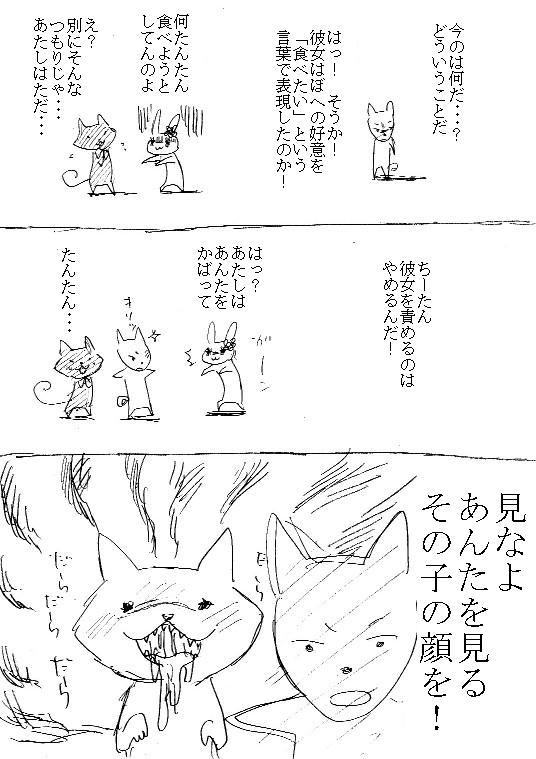 今のは何だ・・・?
どういうことだ
はっ! そうか!
彼女はぼへの好意を
「食べたい」という
言葉で表現したのか!
何たんたん
食べようと
してんのよ
え?
別にそんな
つもりじゃ・・・
あたしはただ・・・
ちーたん
彼女を責めるのは
やめるんだ!
はっ?
あたしは
あんたを
かばって
ガーン
キリッ
たんたん・・・
見なよ
あんたを見る
その子の顔を!
だーら
だーら
だーら
だーら